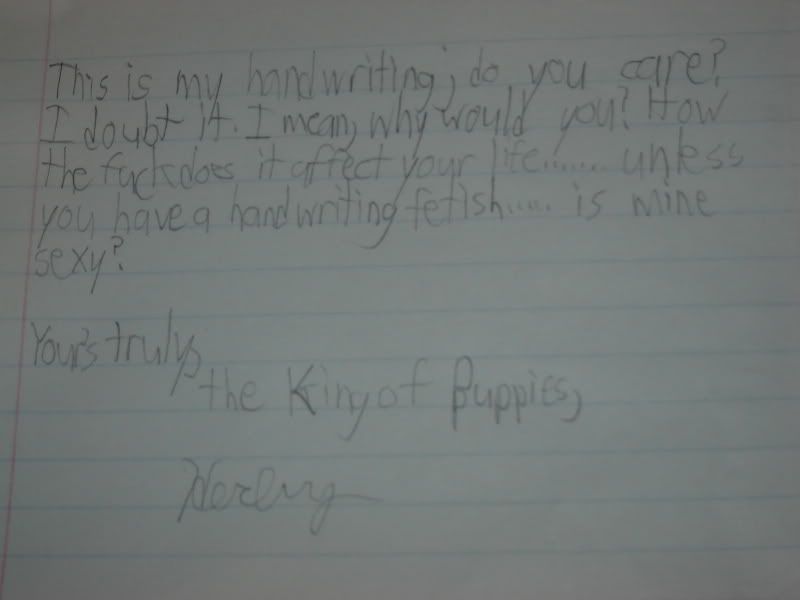 This is my handwriting, do you care?
I doubt it. I mean, why would you? How
the fuck does it affect your life....... unless
you have a handwriting fetish..... is mine
sexy?
Your's truly,
the King of Puppies,